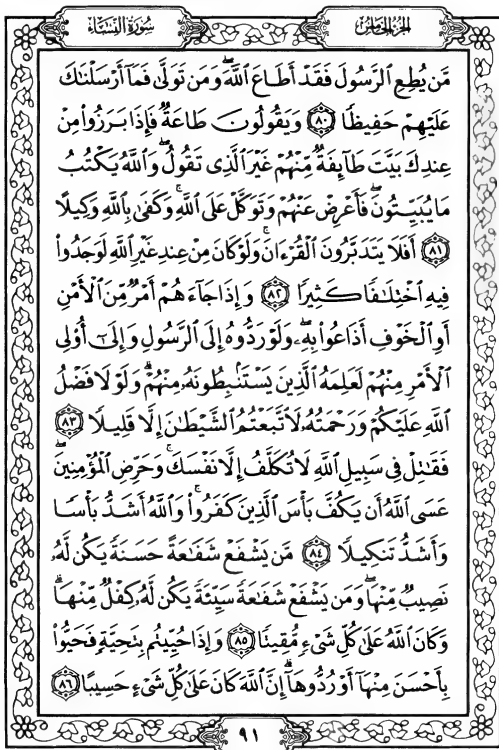 سُورَةُ النِّسَاءِ الجُزءُ الخَامِسُ
مَّن يُطِعِ ٱلرَّسُولَ فَقَدۡ أَطَاعَ ٱللَّهَۖ وَمَن تَوَلَّىٰ فَمَآ أَرۡسَلۡنَٰكَ
عَلَيۡهِمۡ حَفِيظٗا ٨٠ وَيَقُولُونَ طَاعَةٞ فَإِذَا بَرَزُواْ مِنۡ
عِندِكَ بَيَّتَ طَآئِفَةٞ مِّنۡهُمۡ غَيۡرَ ٱلَّذِي تَقُولُۖ وَٱللَّهُ يَكۡتُبُ
مَا يُبَيِّتُونَۖ فَأَعۡرِضۡ عَنۡهُمۡ وَتَوَكَّلۡ عَلَى ٱللَّهِۚ وَكَفَىٰ بِٱللَّهِ وَكِيلًا
٨١ أَفَلَا يَتَدَبَّرُونَ ٱلۡقُرۡءَانَۚ وَلَوۡ كَانَ مِنۡ عِندِ غَيۡرِ ٱللَّهِ لَوَجَدُواْ
فِيهِ ٱخۡتِلَٰفٗا كَثِيرٗا ٨٢ وَإِذَا جَآءَهُمۡ أَمۡرٞ مِّنَ ٱلۡأَمۡنِ
أَوِ ٱلۡخَوۡفِ أَذَاعُواْ بِهِۦۖ وَلَوۡ رَدُّوهُ إِلَى ٱلرَّسُولِ وَإِلَىٰٓ أُوْلِي
ٱلۡأَمۡرِ مِنۡهُمۡ لَعَلِمَهُ ٱلَّذِينَ يَسۡتَنۢبِطُونَهُۥ مِنۡهُمۡۗ وَلَوۡلَا فَضۡلُ
ٱللَّهِ عَلَيۡكُمۡ وَرَحۡمَتُهُۥ لَٱتَّبَعۡتُمُ ٱلشَّيۡطَٰنَ إِلَّا قَلِيلٗا ٨٣
فَقَٰتِلۡ فِي سَبِيلِ ٱللَّهِ لَا تُكَلَّفُ إِلَّا نَفۡسَكَۚ وَحَرِّضِ ٱلۡمُؤۡمِنِينَۖ
عَسَى ٱللَّهُ أَن يَكُفَّ بَأۡسَ ٱلَّذِينَ كَفَرُواْۚ وَٱللَّهُ أَشَدُّ بَأۡسٗا
وَأَشَدُّ تَنكِيلٗا ٨٤ مَّن يَشۡفَعۡ شَفَٰعَةً حَسَنَةٗ يَكُن لَّهُۥ
نَصِيبٞ مِّنۡهَاۖ وَمَن يَشۡفَعۡ شَفَٰعَةٗ سَيِّئَةٗ يَكُن لَّهُۥ كِفۡلٞ مِّنۡهَاۗ
وَكَانَ ٱللَّهُ عَلَىٰ كُلِّ شَيۡءٖ مُّقِيتٗا ٨٥ وَإِذَا حُيِّيتُم بِتَحِيَّةٖ فَحَيُّواْ
بِأَحۡسَنَ مِنۡهَآ أَوۡ رُدُّوهَآۗ إِنَّ ٱللَّهَ كَانَ عَلَىٰ كُلِّ شَيۡءٍ حَسِيبًا ٨٦
٩١